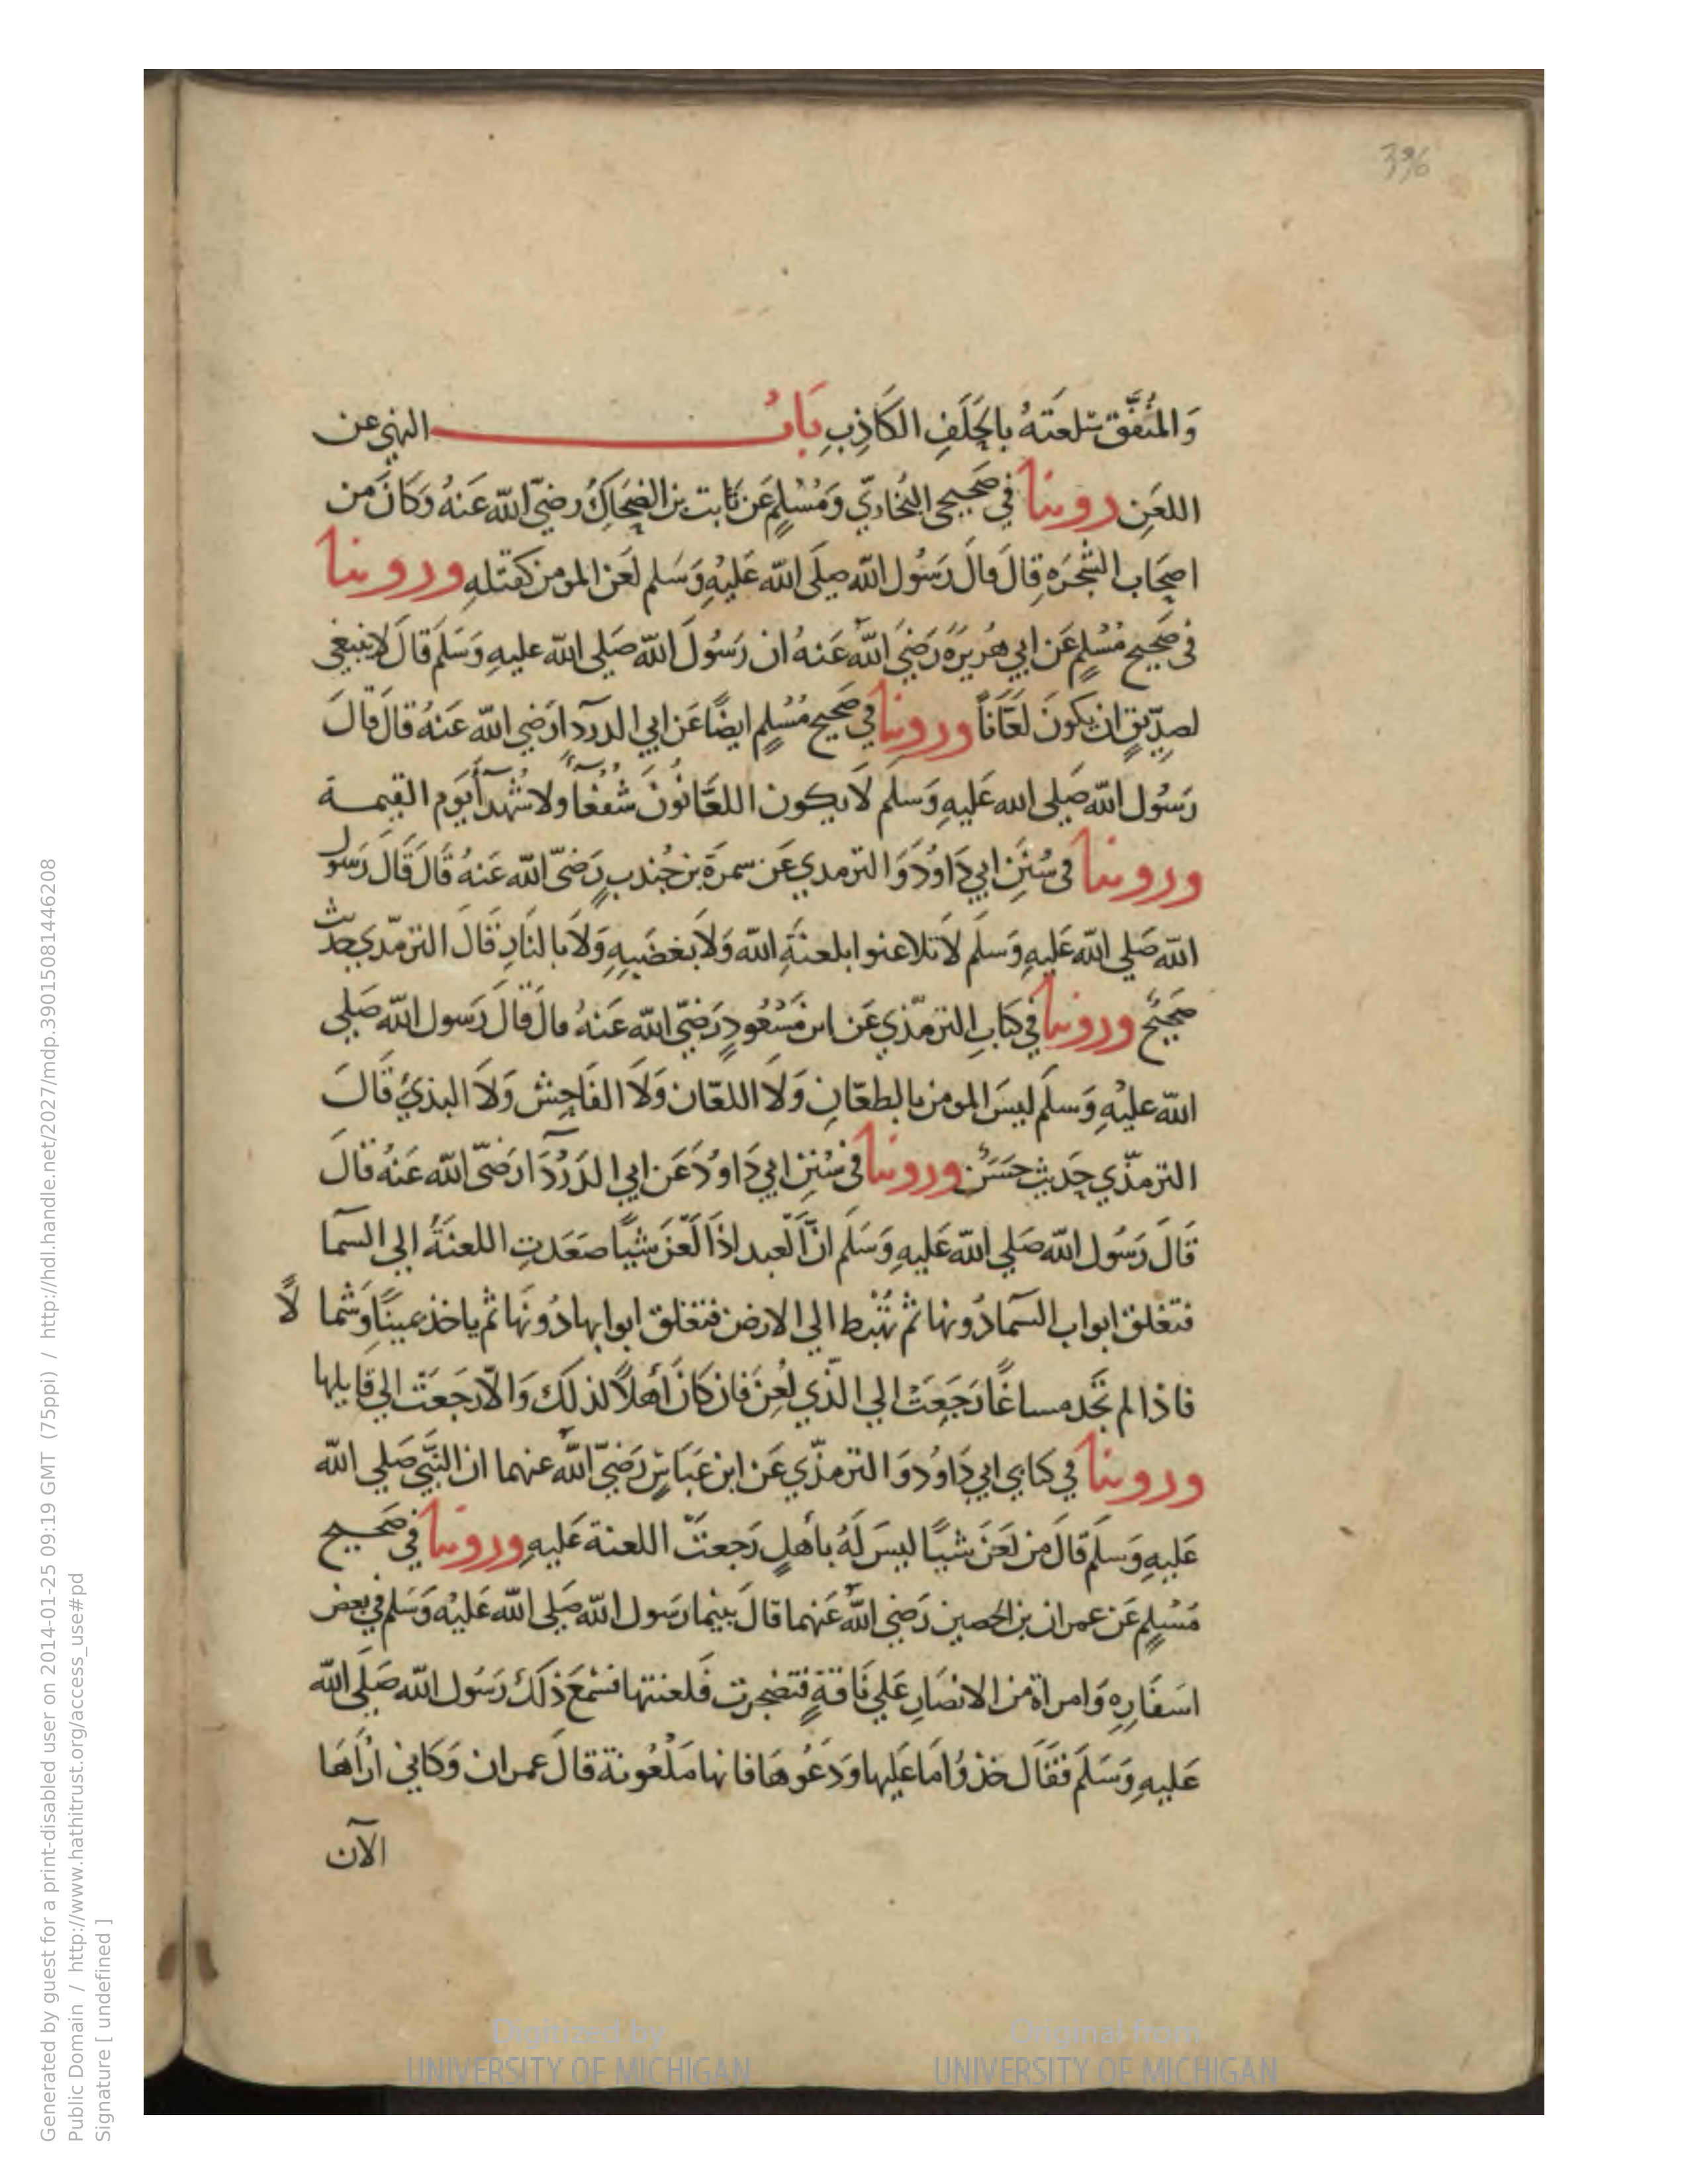 396
وَالمُنَفِّق سلعَتهُ بِالحَلَفِ الكَاذِبِ بَابُ النهي عن
اللعَنِ روينا في صَحيحي البُخاريّ وَمُسْلِمٍ عَن ثَابت بن الضحَاكِ رضيَ الله عَنهُ وَكَانَ من
اصحَاب الشجَرَةِ قالَ قالَ رَسُول الله صلَى الله عَليْهِ وَسَلم لعَن المومن كقتلهِ وروينا
في صَحيح مُسْلِمٍ عَن ابي هُريرَةَ رَضيَ اللهُ عَنهُ ان رَسُولَ الله صَلى الله عليهِ وَسَلمَ قالَ لا ينبغي
لصدِّيقٍ ان يكونَ لعَّاناً وروينا في صَحيح مُسْلِمٍ ايضًا عَن ابي الدردآ رَضي الله عَنهُ قالَ قالَ
رَسُول الله صَلى الله عَليهِ وَسلم لَا يكون اللعَّانُونَ شُفَعَآءَ ولا شُهَدآءَ يَوم القيمـة
وروينا في سُنَنِ ابي دَاوُدَ وَالترمدي عَن سمرَة بن جُندب رَضيَ الله عَنهُ قَالَ قَالَ رَسول
الله صَلى الله عَليهِ وَسلَم لاَ تلاعنوا بلعنَةِ الله وَلاَ بغضَبِهِ وَلَا بالنَارِ قَالَ الترمّدي حدث
صَحيحٌ وروينا في كتابِ الترمّذي عَن ابن مَسْعُودٍ رَضيَ الله عَنهُ قالَ قَالَ رَسول الله صَلى
الله عليْهِ وَسلَم ليسَ المومن بالطعّانِ وَلَا اللعّان وَلاَ الفَاحِش وَلاَ البذيْ قَالَ
الترمذّي حَديث حَسَنٌ وروينا في سُنَنِ ابي دَاوُدَ عَن ابي الدَرْدَآ رَضيَ الله عَنهُ قالَ
قَالَ رَسُول الله صَلى الله عَليهِ وَسَلَم انَّ العبد اذَا لَعَن شيًا صَعَدتِ اللعنَةُ الى السمآ
فتغلق ابواب السمآ دُونها ثم تُهْبَط الى الارض فتغلق ابوابها دُونَها ثم ياخذ يمينًا وَشمالًا
فاذا لم تَجد مساغًا رَجَعَتْ الى الّذي لُعِنَ فان كانَ أهلًا لذلك وَالاّ رَجَعَتْ الى قايلها
وروينا في كتابي ابي دَاوُد وَالترمذّي عَن ابن عَبَاسٍ رَضيَ اللهُ عنهما ان النَبيَ صَلى الله
عَليهِ وَسلَم قالَ من لَعَنَ شيًا ليسَ لَهُ بأهلٍ رَجعتْ اللعنة عَليهِ وروينا في صَحيح
مُسْلِمٍ عَن عمران بن الحصين رَضيَ اللهُ عَنهما قالَ بينما رَسول الله صَلى الله عَليْه وَسَلم في بعض
اسَفَارِهِ وَامراة من الانصَارِ عَلى نَاقةٍ فتضجرت فَلعنتها فسْمَعَ ذلكَ رَسُول الله صَلَى الله
عَليهِ وَسَلَم فقَالَ خذوُا مَا عَليها وَدَعُوهَا فانها مَلْعُونة قالَ عمران وَكَاني ارَاهَا
الآن
Generated by guest for a print-disabled user on 2014-01-25 09:19 GMT (75ppi) / http://hdl.handle.net/2027/mdp.39015081446208
Public Domain / http://www.hathitrust.org/access_use#pd
Signature [ undefined ]
Digitized by
UNIVERSITY OF MICHIGAN
Original from
UNIVERSITY OF MICHIGAN